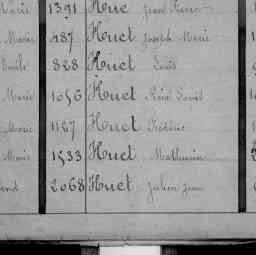 Marie 1391 Hue Jean Pierre
Marie 487 Huet Joseph Marie
Emile 828 Huet Louis
Marie 1056 Huet René Louis
Marie 1127 Huet Frédéric
Marie 1533 Huet Mathurin
2068 Huet Julien Jean